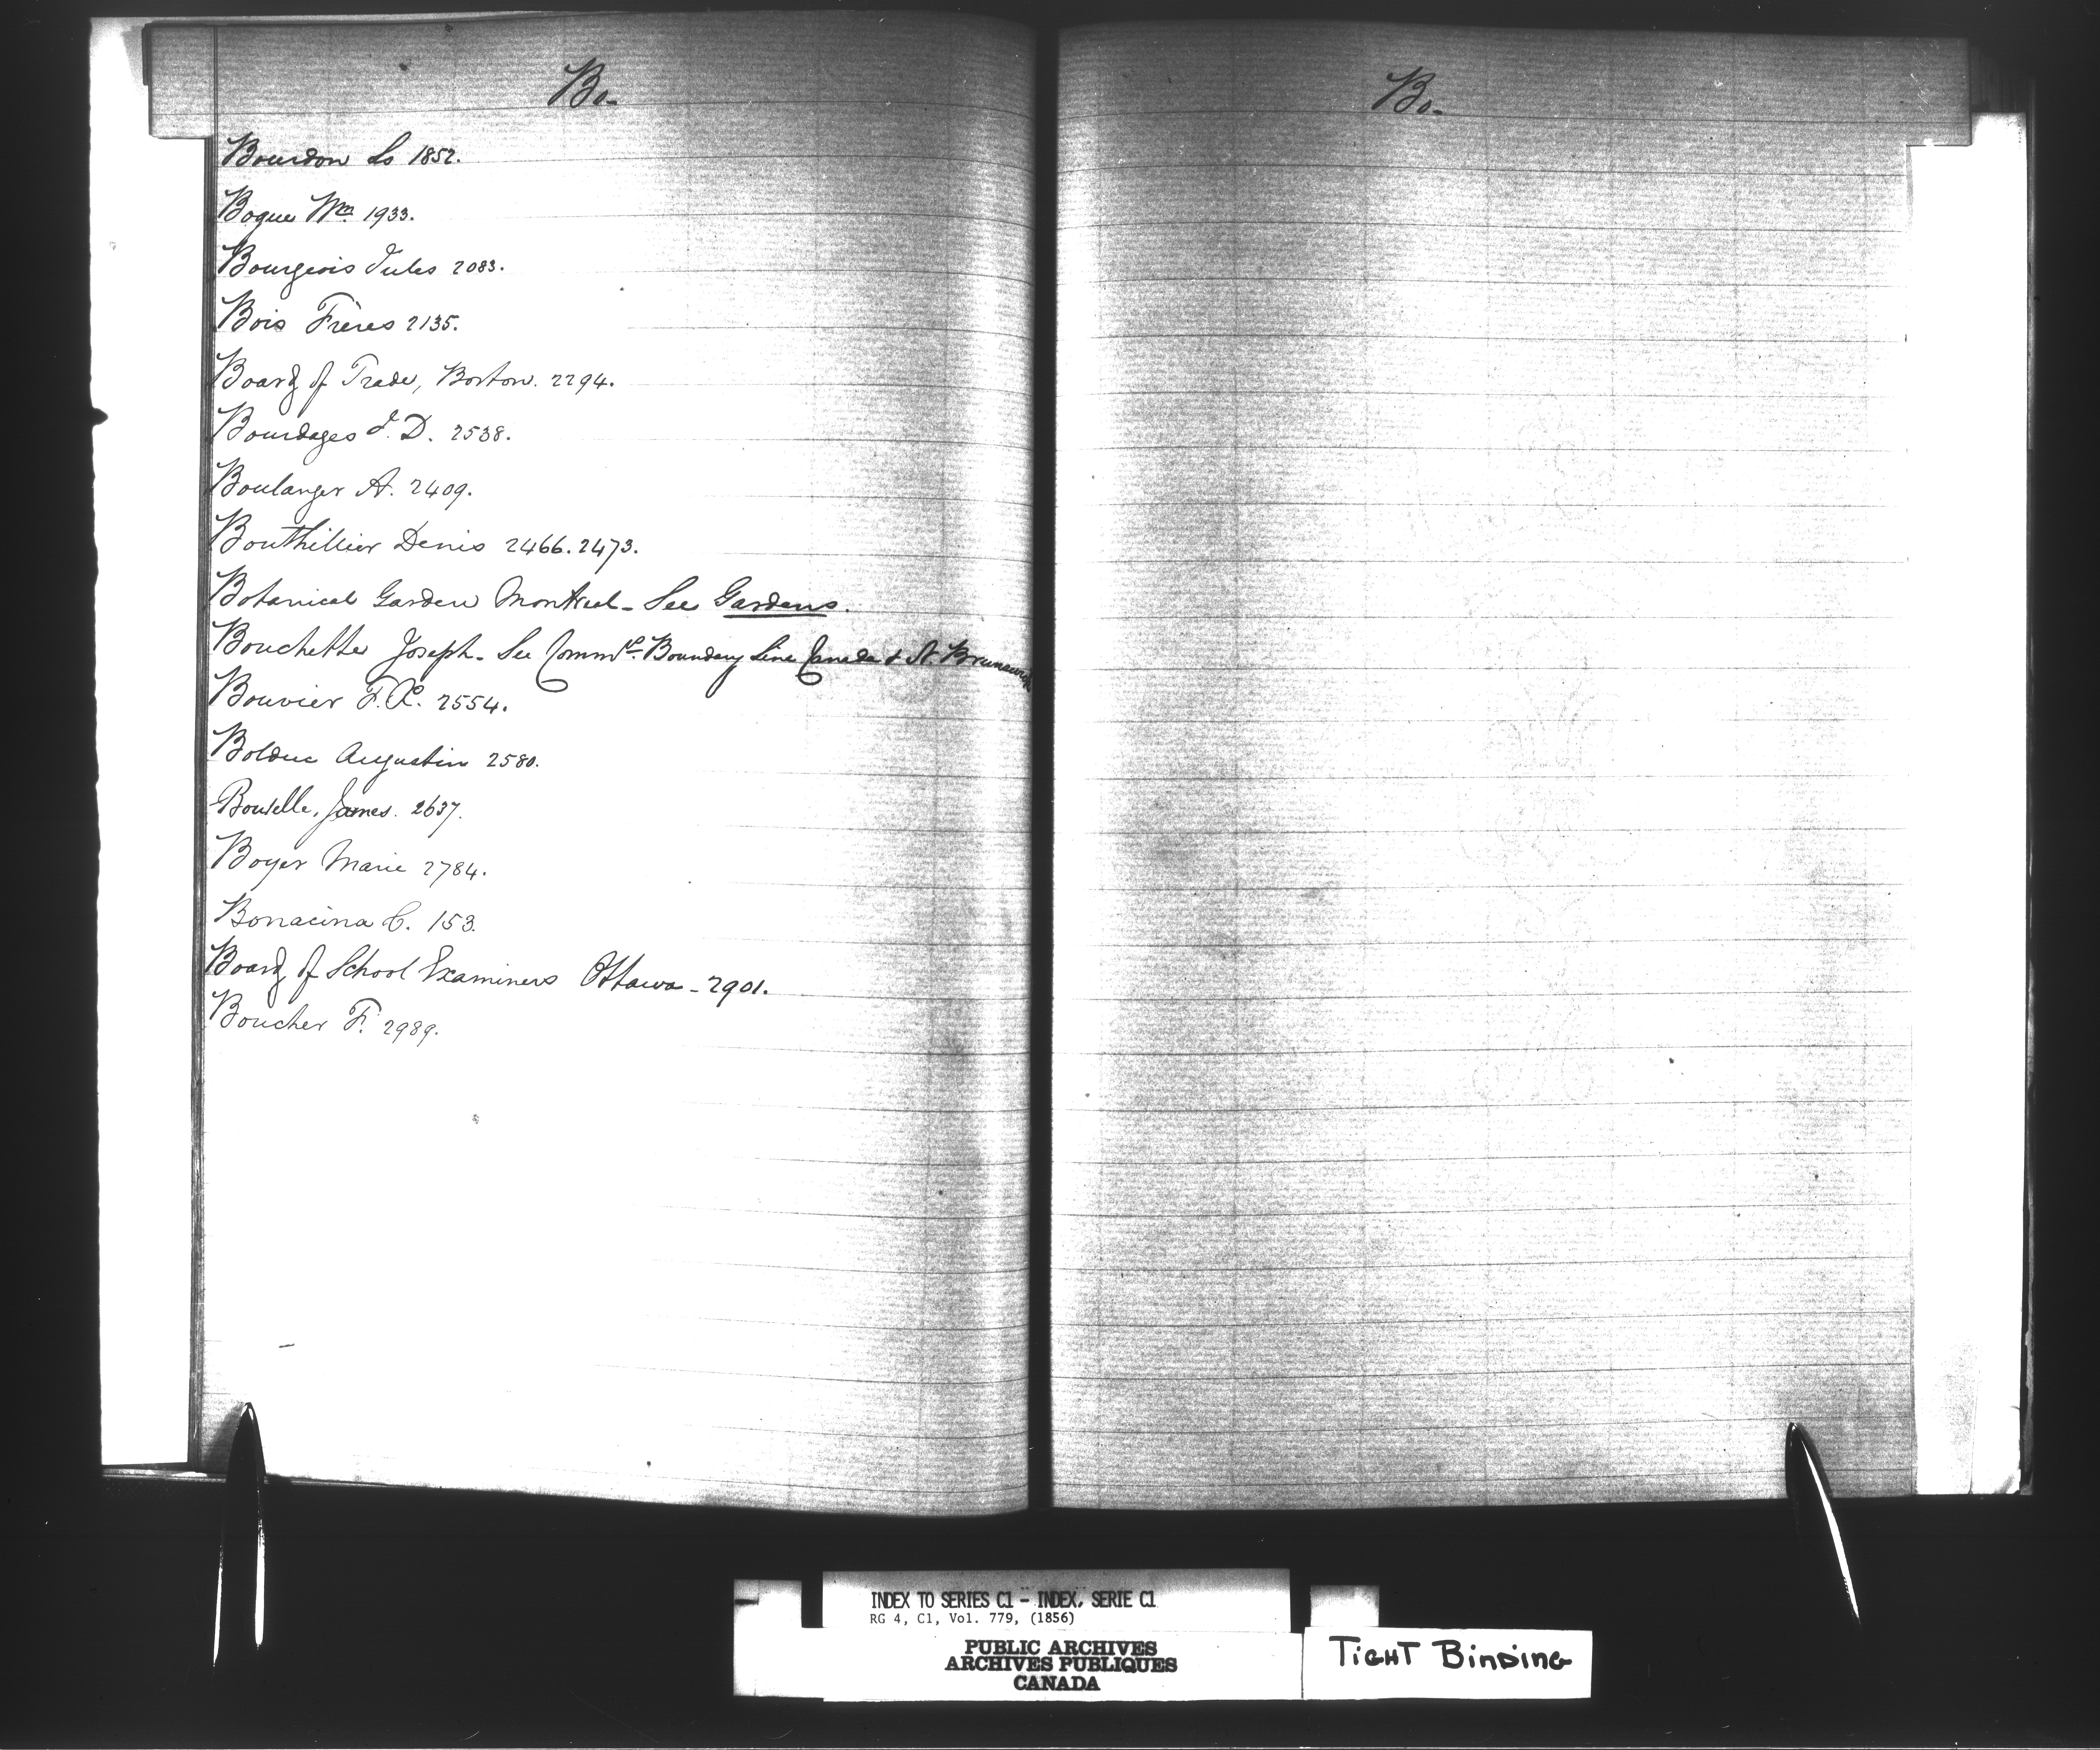 Bo-
Bourdon Ls 1852.
Bogue Wm 1933.
Bourgeois Jules 2083.
Bois Frères 2135.
Board of Trade, Boston. 2294.
Bourdages J. D. 2538.
Boulanger A. 2409.
Bouthillier Denis 2466. 2473.
Botanical Garden Montreal - See Gardens.
Bouchette Joseph - See Commrs. Boundary Line Canada & N. Brunswick
Bouvier F. 2554.
Bolduc Augustin 2580.
James. 2637.
Boyer Marie 2784.
Bonacina C. 153.
Board of School Examiners Ottawa - 2901.
Boucher F. 2989.
Bo-
INDEX TO SERIES C1 - INDEX, SERIE C1
RG 4, C1, Vol. 779, (1856)
PUBLIC ARCHIVES
ARCHIVES PUBLIQUES
CANADA
TIGHT BINDING